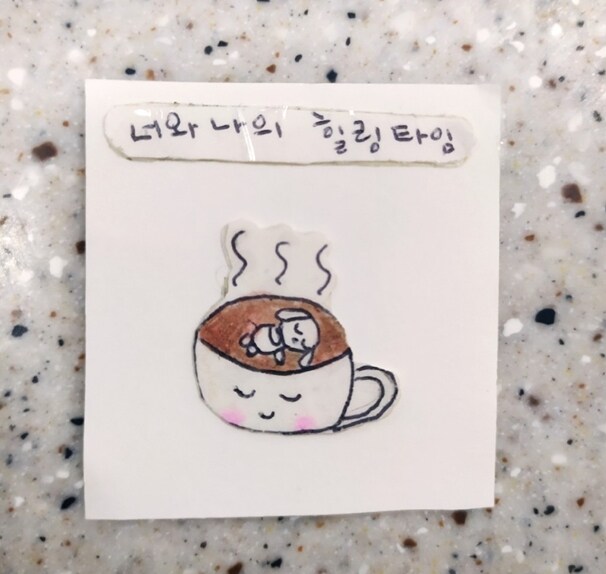 너와 나의 힐링타임